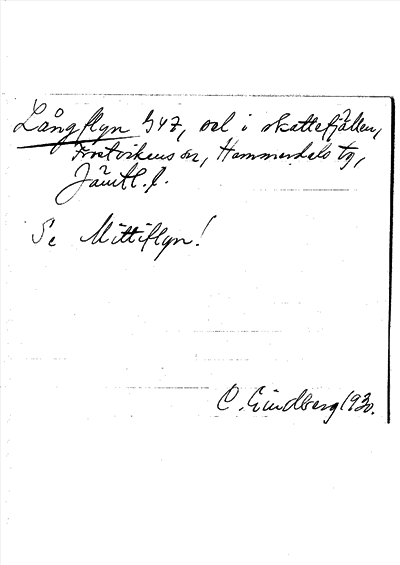 Långflyn 547, sel i skattefjällen,
Frostvikens sn, Hammerdals tg,
Jämtl. l.
Se Mittiflyn!
C. Lindberg 1930.